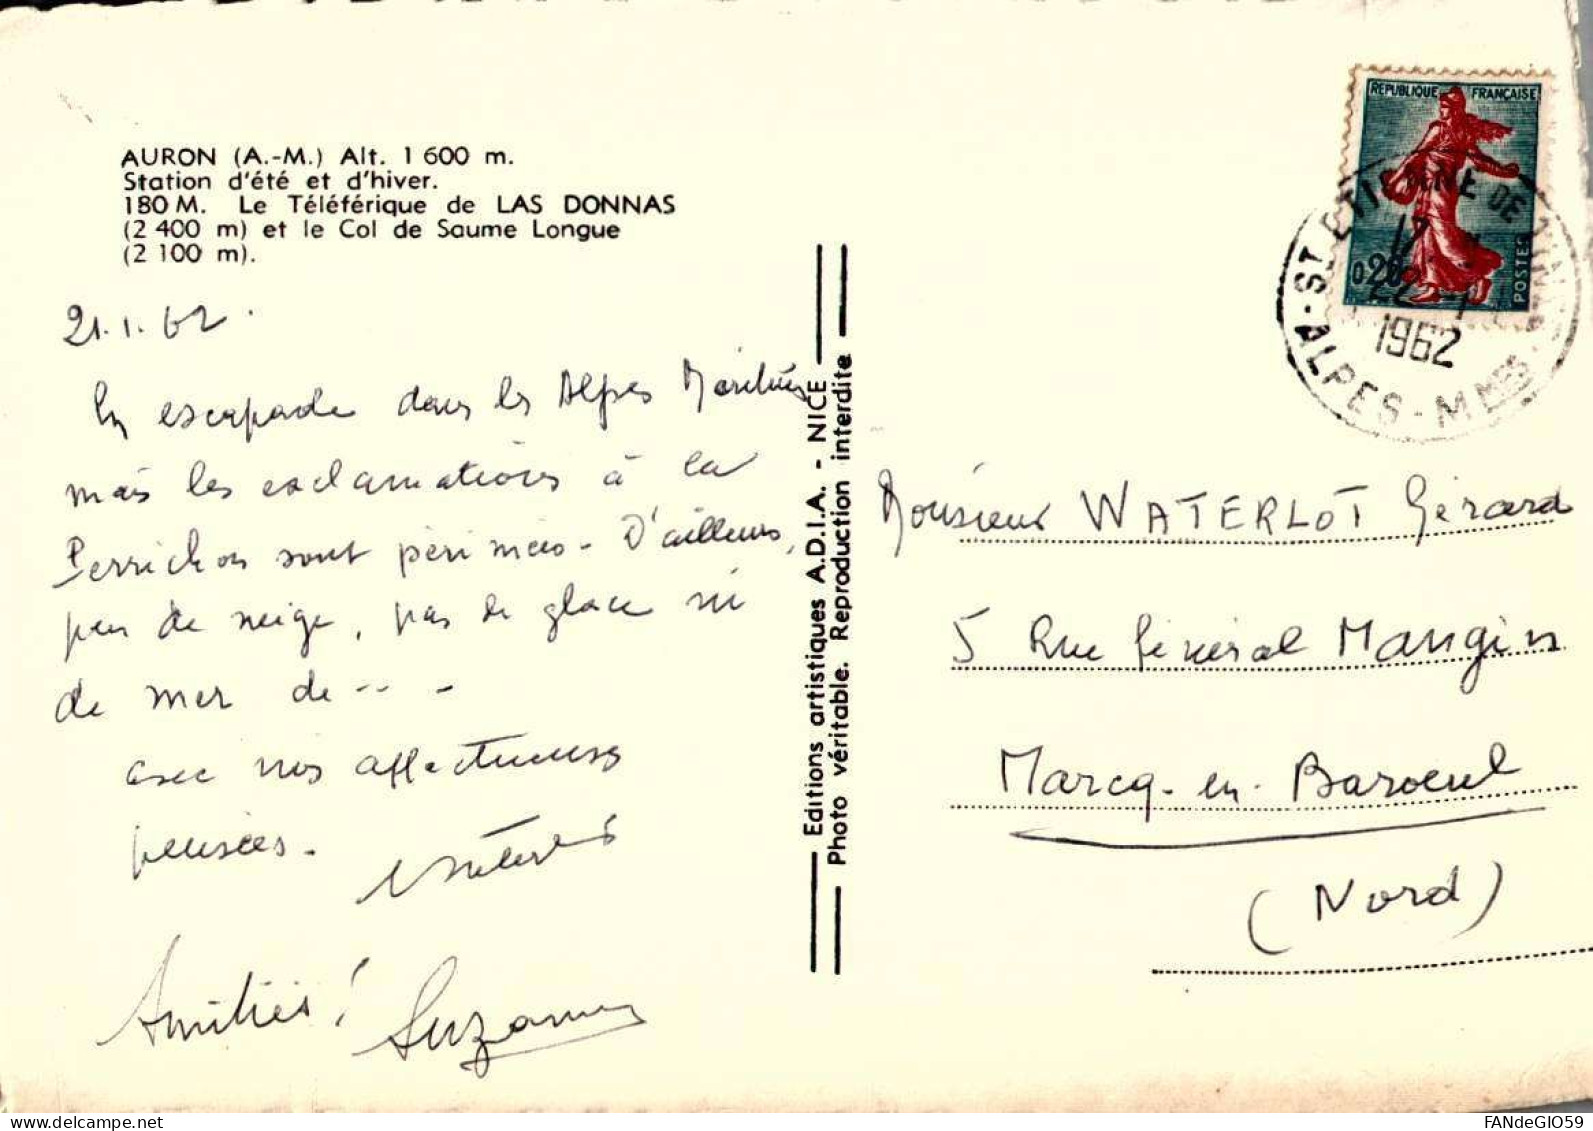 AURON (A.-M.) Alt. 1 600 m.
Station d'été et d'hiver.
180 M. Le Téléférique de LAS DONNAS
(2 400 m) et le Col de Saume Longue
(2 100 m).
21.1.62.
En escapade dans les Alpes Maritimes
mais les exclamations à la
Perrichon sont périmées - D'ailleurs,
peu de neige, pas de glace ni
de mer de -- -
avec nos affectueuses
pensées -
Amitiés ! Suzanne
Editions artistiques A.D.I.A. - NICE
Photo véritable. Reproduction interdite
REPUBLIQUE FRANÇAISE
0,20
POSTES
ST ETIENNE DE TINEE
17
22 - 1
1962
ALPES - MMES
Monsieur WATERLOT Gérard
5 Rue Général Mangin
Marcq-en-Baroeul
(Nord)
FANdeGIO59